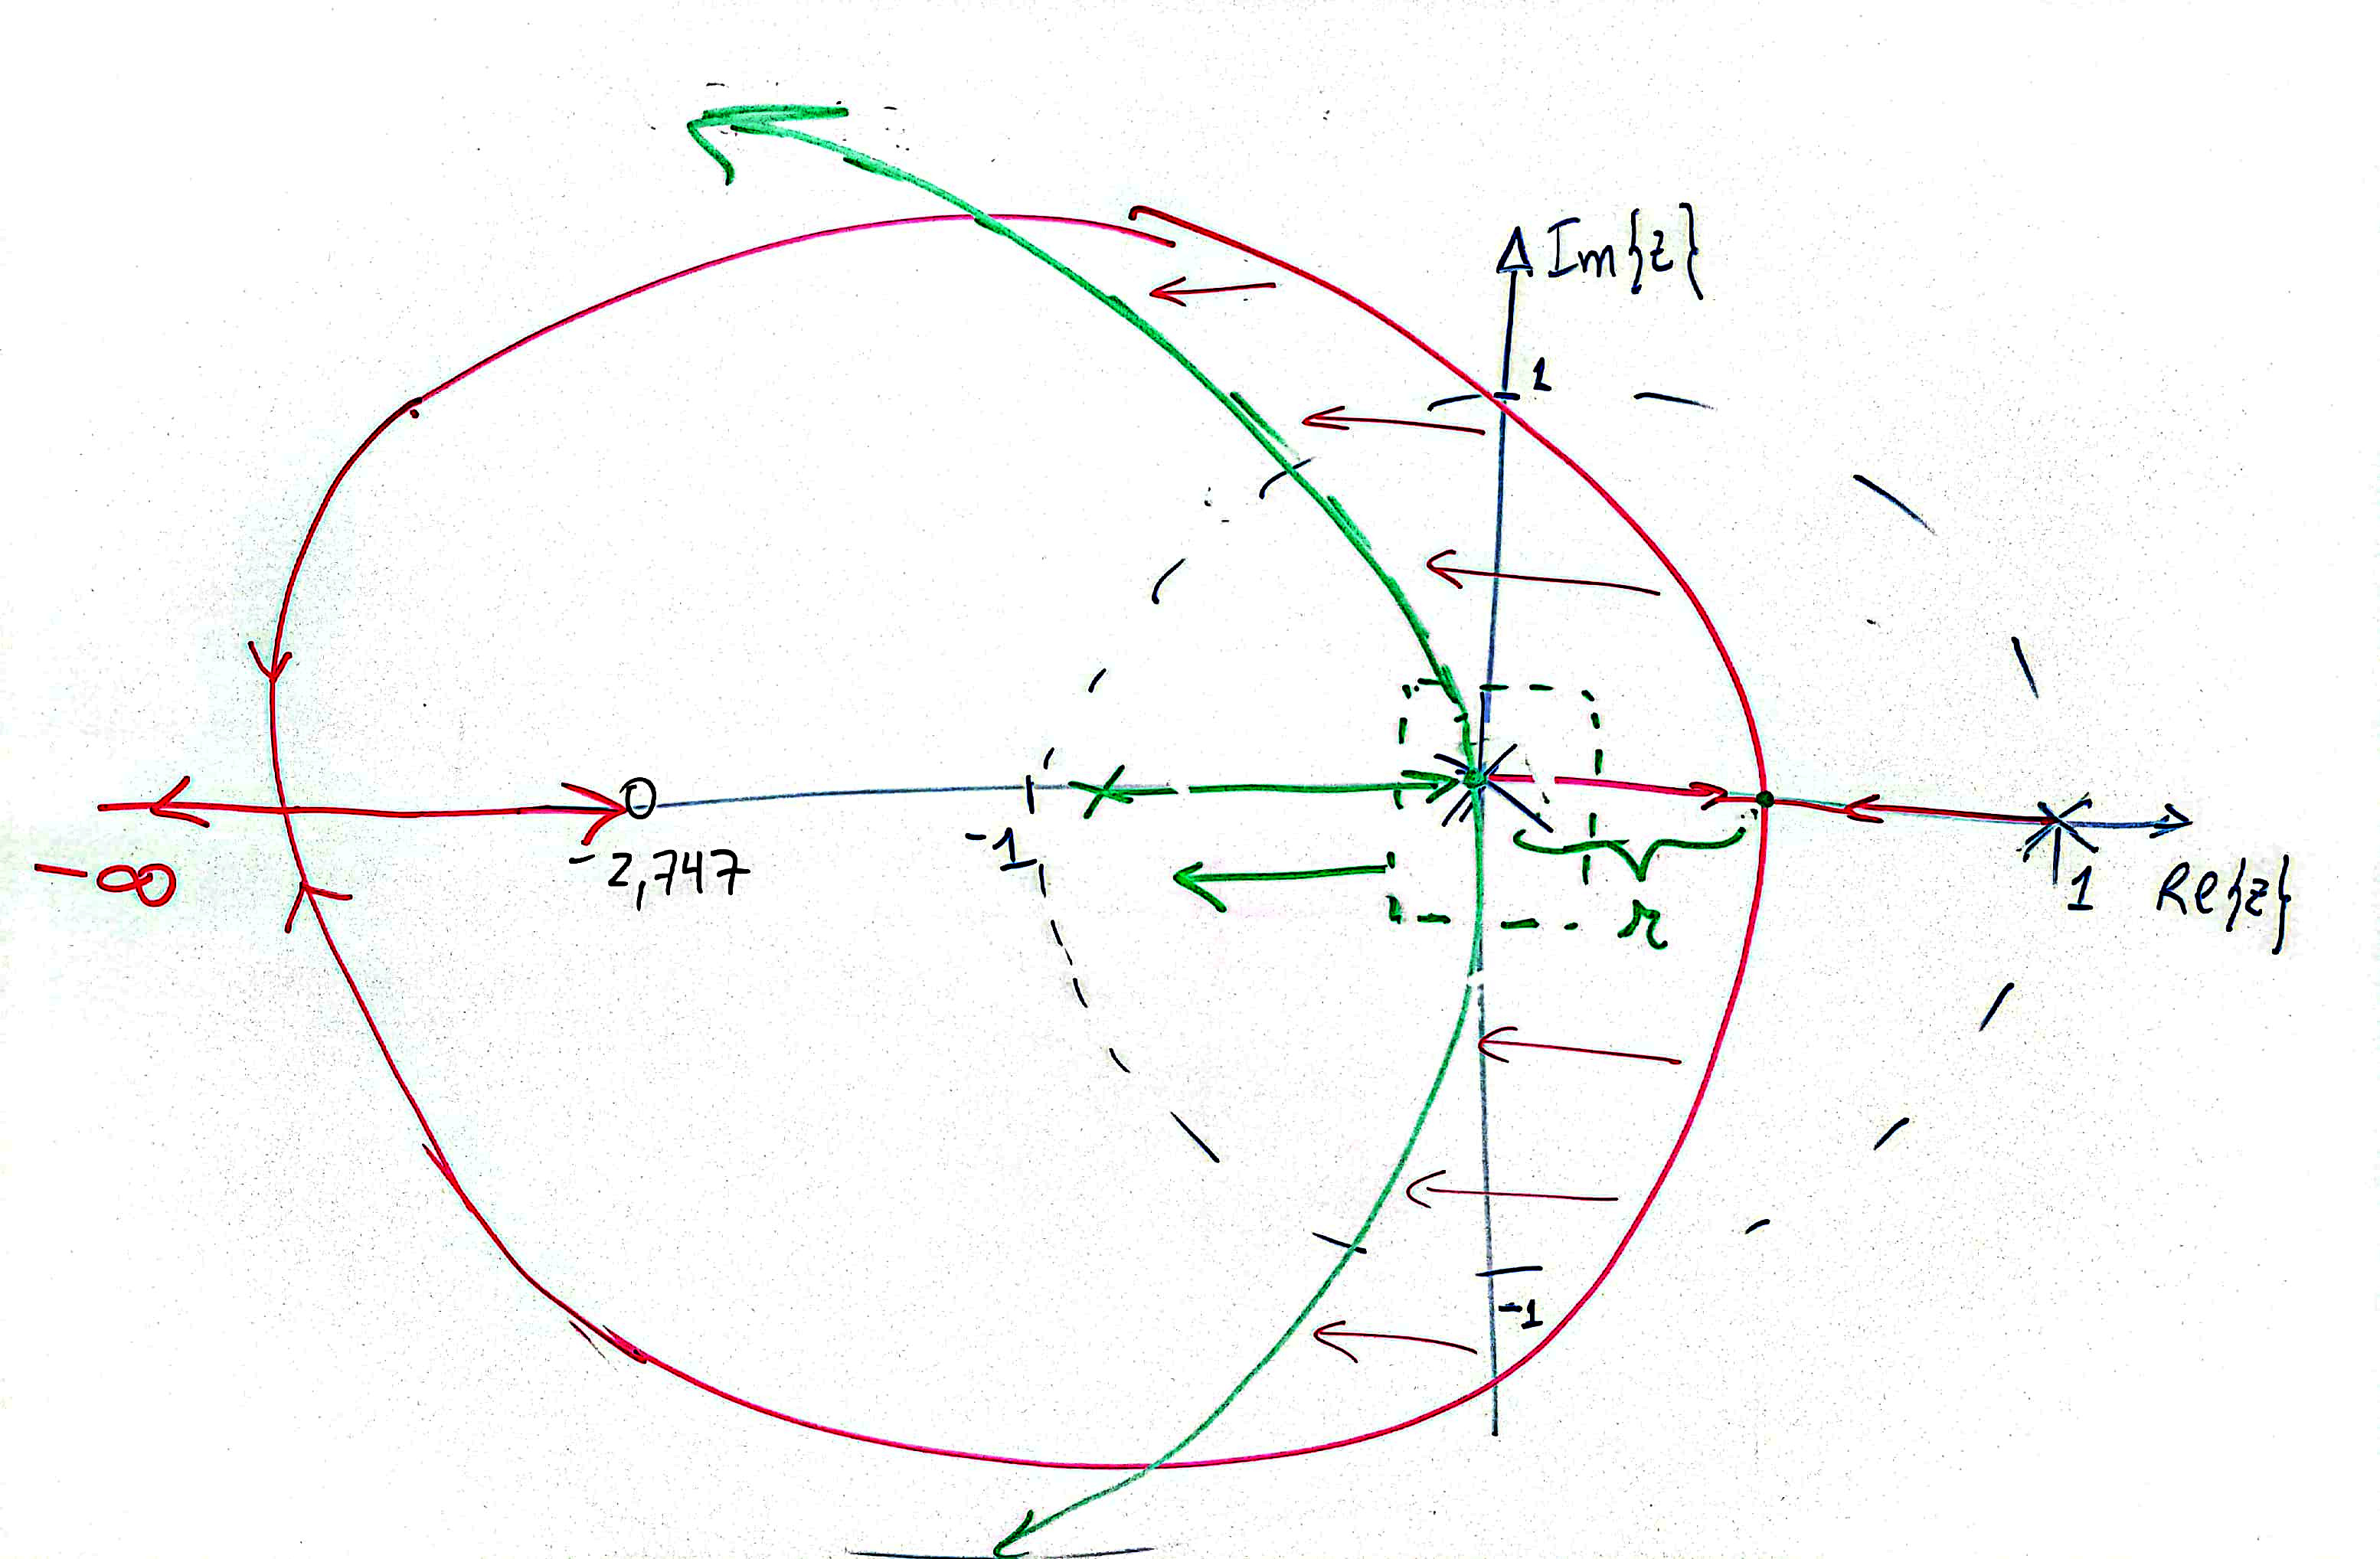 Im{z}
1
-2,747
-1
-∞
1
Re{z}
r
-1